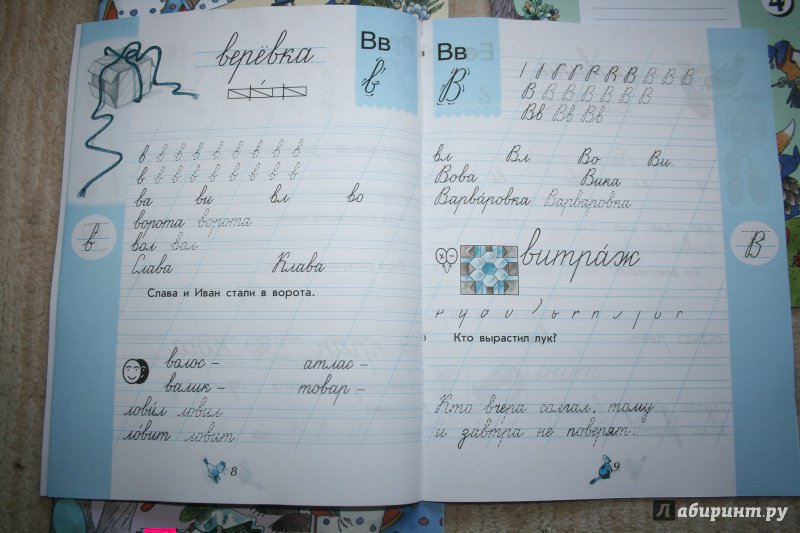 верёвка
Вв
в
в в в в в в в в в
в в в в в в в в в
ва ви вл во
ворота ворота
вол вол
Слава Клава
Слава и Иван стали в ворота.
волос – атлас –
валик – товар –
лови́л ловил
ло́вит ловит
в
8
Вв
В
В В В В В В В
Вв Вв Вв
вл Вл Во Ви
Вова Вика
Варва́ровка Варваровка
витра́ж
Кто вырастил лук?
Кто вчера солгал, тому
и завтра не поверят.
В
9
4
Лабиринт.ру